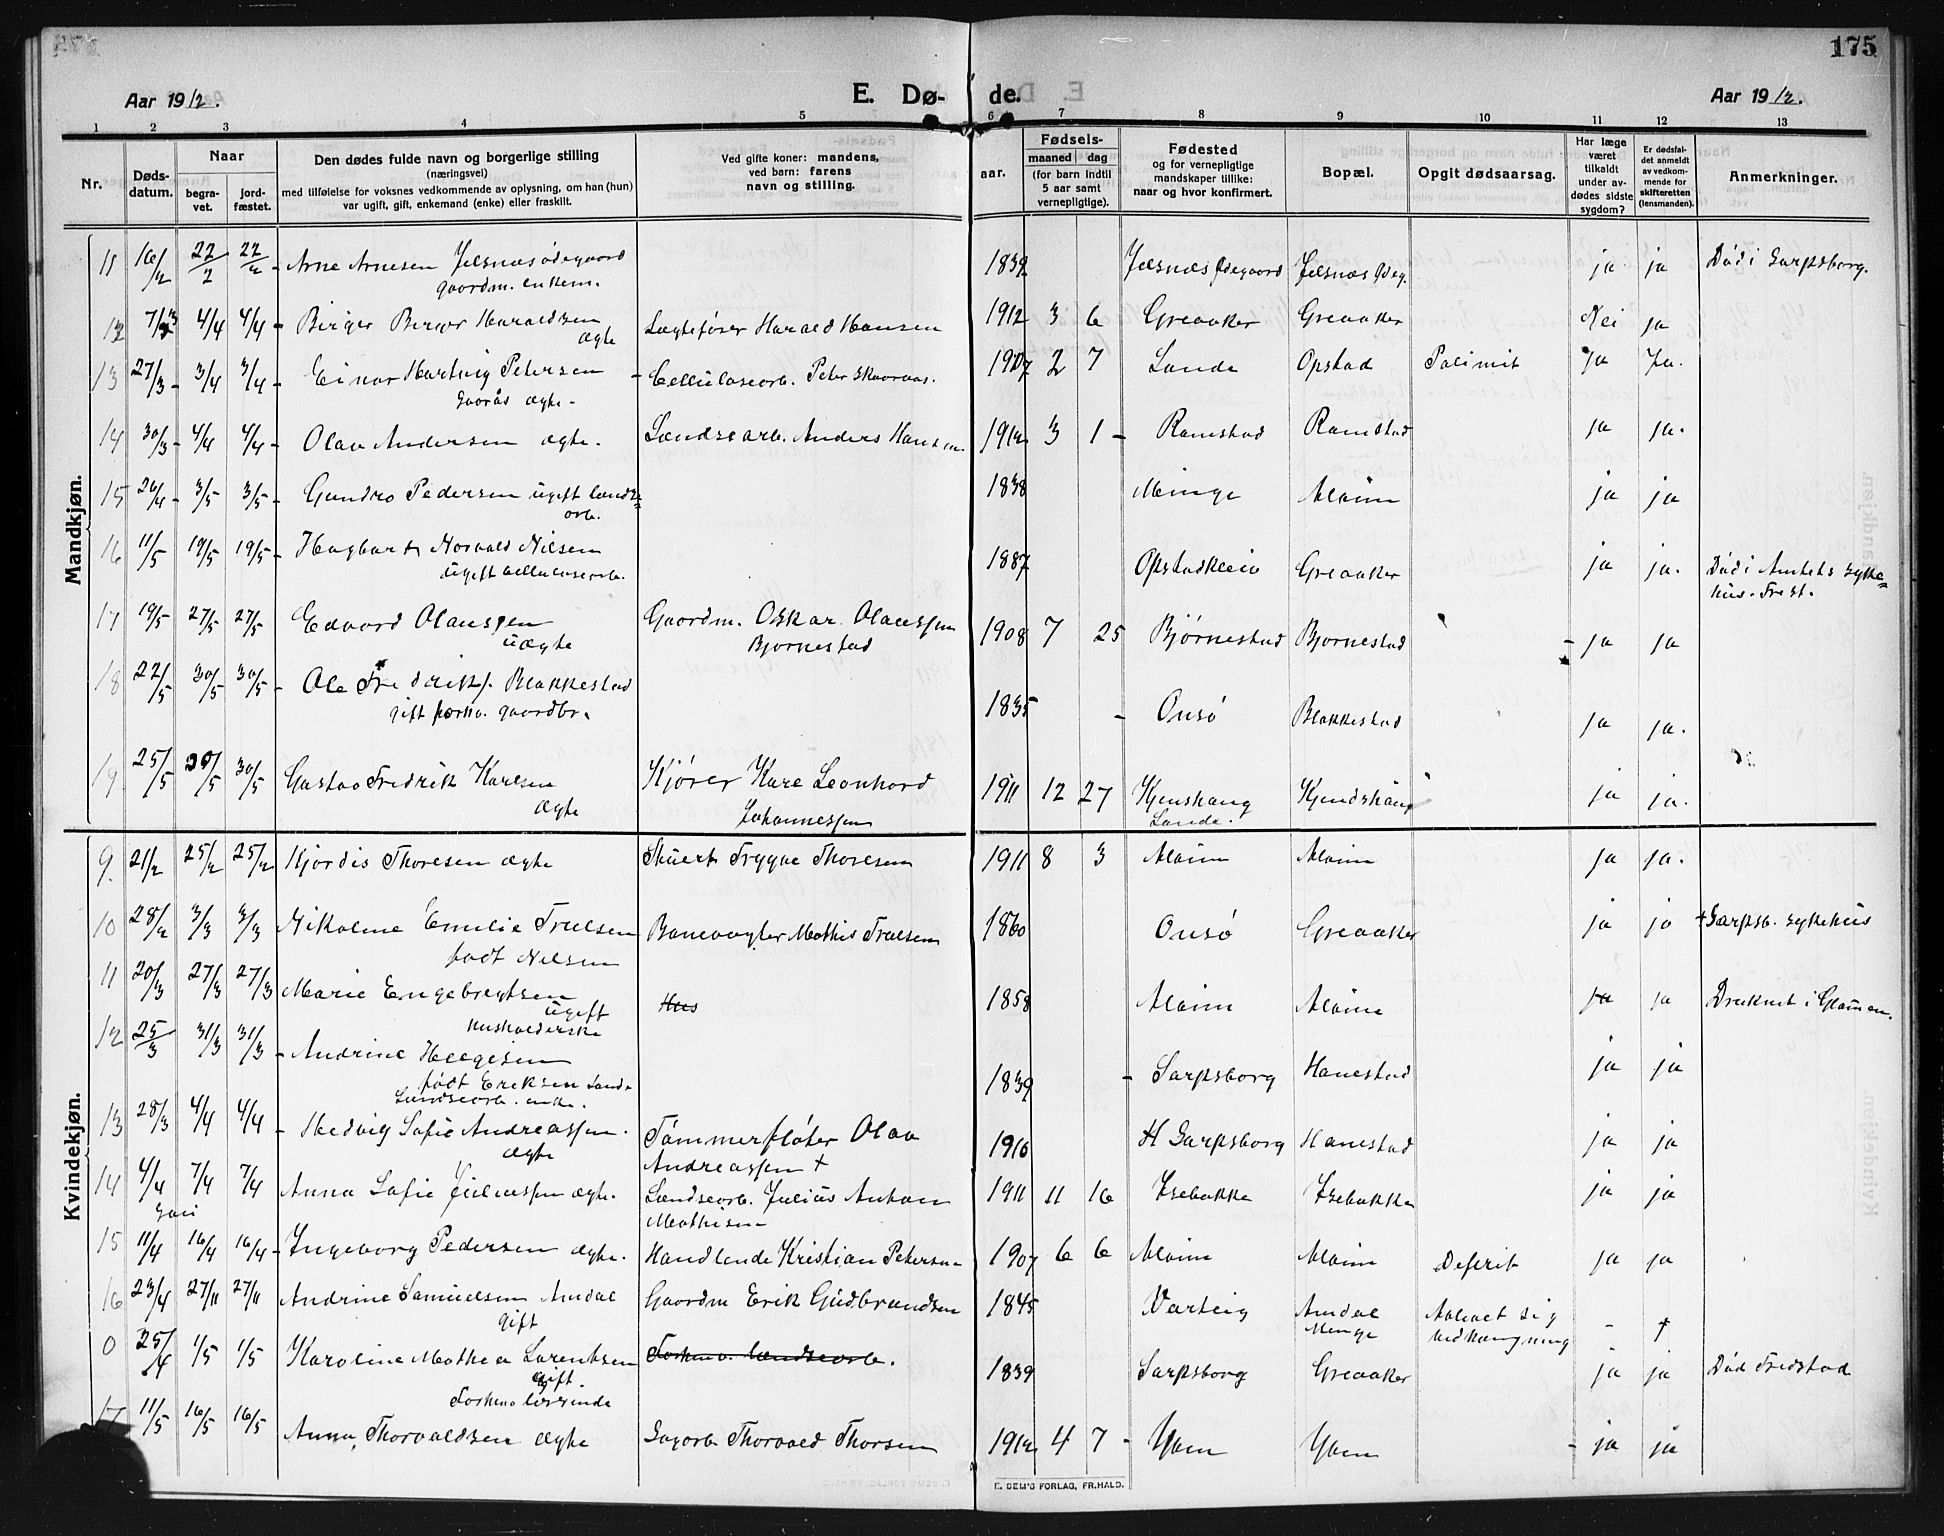 175
Aar 1912.
E. Dø- de.
Aar 1912.
1 2 3 4 5 6 7 8 9 10 11 12 13
Nr.
Døds-
datum.
Naar
begra-
vet.
jord-
fæstet.
Den dødes fulde navn og borgerlige stilling
(næringsvei)
med tilføielse for voksnes vedkommende av oplysning, om han (hun)
var ugift, gift, enkemand (enke) eller fraskilt.
Ved gifte koner: mandens,
ved barn: farens
navn og stilling.
aar.
Fødsels-
maaned dag
(for barn indtil
5 aar samt
vernepligtige).
Fødested
og for vernepligtige
mandskaper tillike:
naar og hvor konfirmert.
Bopæl.
Opgit dødsaarsag.
Har læge
været
tilkaldt
under av-
dødes sidste
sygdom?
Er dødsfal-
det anmeldt
av vedkom-
mende for
skifteretten
(lensmanden).
Anmerkninger.
Mandkjøn.
11 16/2 22/2 22/2 - Arne Arnesen Jelsnæsødegaard 1839 Jelsnæs Ødegaard Jelsnæs Ødeg. ja ja Død i Sarpsborg.
gaardm. enkem.
12 4/4 4/4 - Birger Berger Haraldsen Lægtefører Harald Hansen 1912 3 6 Greaaker Greaaker Nei ja
ægte
13 27/3 - 3/4 3/4 - Einar Hartvig Petersen - Celluloseorb. Peter Skaaraas. 2 7 Lande Opstad Ja Ja.
ægte -
14 30/3 - 4/4 4/4 - Olav Andersen ægte. Landsearb. Anders Hansen 1912 3 1 - Ramstad Ramstad ja ja.
15 26/4 - 3/5 3/5 - Gundro Pedersen ugift landse= 1838 Minge Alvim ja ja
orb.
16 11/5 19/5 19/5 - Hagbart Norvald Nilsen 1887 Opstadkleiv Greaaker ja ja. Død i Amtets syke=
ugift celluloseorb. hus. Frest.
17 19/5 27/5 27/5 Edvard Olaussen Gaardm. Oskar Olaussen 1908 7 25 Bjørnestad Bjornestad - ja ja
uægte Bjornestad
18 22/5 30/5 30/5 - Ole Fredriks. Blakkestad 1835 - Onsø Blakkestad ja ja.
gift forhv. gaardbr.
19 25/5 30/5 30/5 Gustav Fredrik Karlsen Kjører Karl Leonhard 1911 12 27 Kjenshaug Kjendshaug ja ja.
ægte Johannessen Lande.
Kvindekjøn.
9. 21/2 25/2 25/2 Hjördis Thoresen ægte Stuert Trygve Thoresen 1911 8 3 Alvim Alvim ja ja.
10 28/2 3/3 3/3 Nikoline Emilie Truelsen Banevogter Mathis Truelsen 1860 Onsø Greaaker ja ja + Sarpsb. sykehus
født Nilsen
11 20/3 27/3 27/3 Marie Engebregtsen Hus 1858 Alvim Alvim ja ja Druknet i Glommen.
ugift
husholderske
12 25/3 31/3 31/3 - Andrine Helgesen 1839 - Sarpsborg Hanestad ja ja
født Eriksen
Landseorb. enke.
13 28/3 4/4 4/4 - Hedvig Sofie Andreassen. Tömmerfløter Olav 1910 H Sarpsborg Hanestad ja ja
ægte Andreassen +
14 4/4 7/4 7/4 Anna Sofie Juliussen ægte. Landseorb. Julius Anton 1911 11 16 Isebakke Isebakke ja ja
Mathisen
15 11/4 16/4 16/4 - Ingeborg Pedersen ægte. Handlende Kristian Petersen 1907 6 6 Alvim Alvim ja ja
16 23/4 27/4 27/4 Andrine Samuelsen Amdal Gaardm Erik Gudbrandsen 1845 Varteig Amdal
gift Minge - †
0 25/4 1/5 1/5 Karoline Mathea Lorentsen Forhenv. landseorb. 1839 Sarpsborg Greaaker ja ja Død Fredstad
gift
17 11/5 16/5 16/5 Anna Thorvaldsen ægte Sagorb. Thorvald Thorsen 1912 4 7 - Yven Yven - ja ja
E. SEM'S FORLAG, FR.HALD.